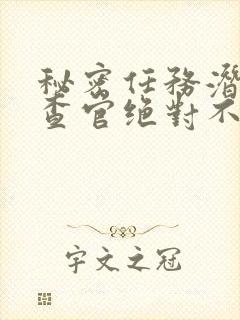 秘密任務潛
查官絕對不
宇文之冠